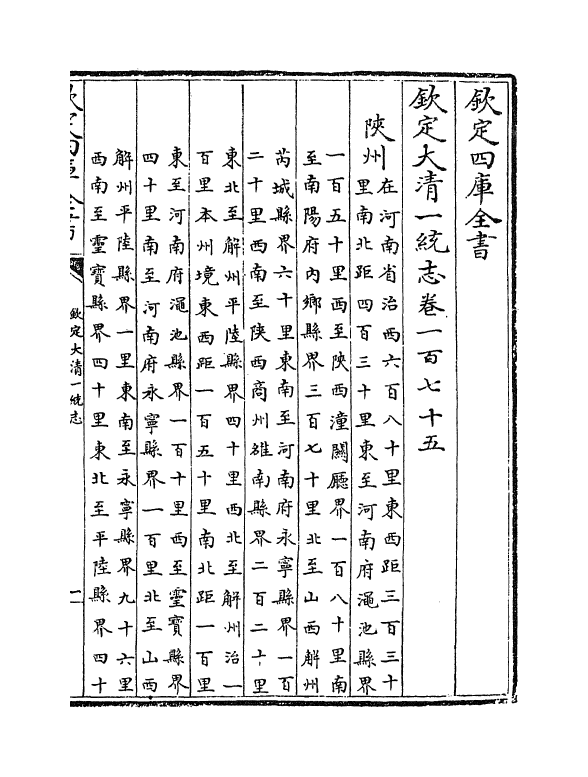 欽定四庫全書
欽定大清一統志卷一百七十五
陜州
在河南省治西六百八十里東西距三百三十
里南北距四百三十里東至河南府澠池縣界
一百五十里西至陜西潼關廳界一百八十里南
至南陽府內鄉縣界三百七十里北至山西解州
芮城縣界六十里東南至河南府永寧縣界一百
二十里西南至陜西商州雒南縣界二百二十里
東北至解州平陸縣界四十里西北至解州治一
百里本州境東西距一百五十里南北距一百里
東至河南府澠池縣界一百十里西至靈寶縣界
四十里南至河南府永寧縣界一百里北至山西
解州平陸縣界一里東南至永寧縣界九十六里
西南至靈寶縣界四十里東北至平陸縣界四十
欽定四庫全書
欽定大清一統志